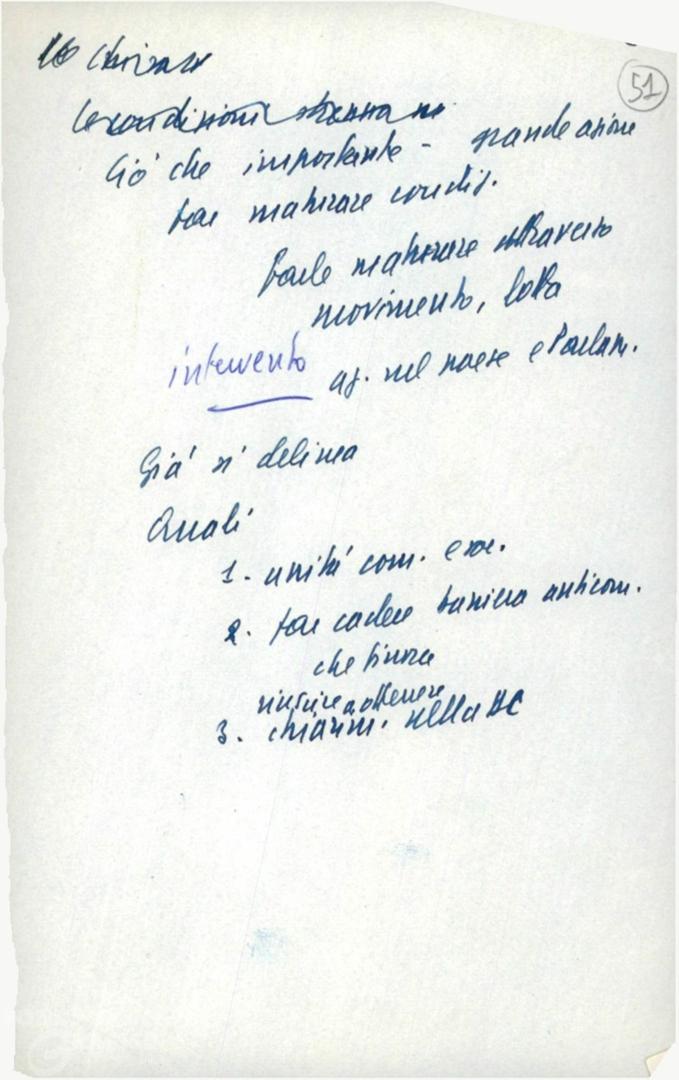 51
Le condizioni
Ciò che importante - grande azione
far maturare condiz.
Farle maturare attraverso
movimento, lotta
intervento
az. nel paese e Parlam.
Già si delinea
Quali
1. unità com. e soc.
2. far cadere barriera anticom.
che finora
riuscire a ottenere
3. chiarim. nella DC